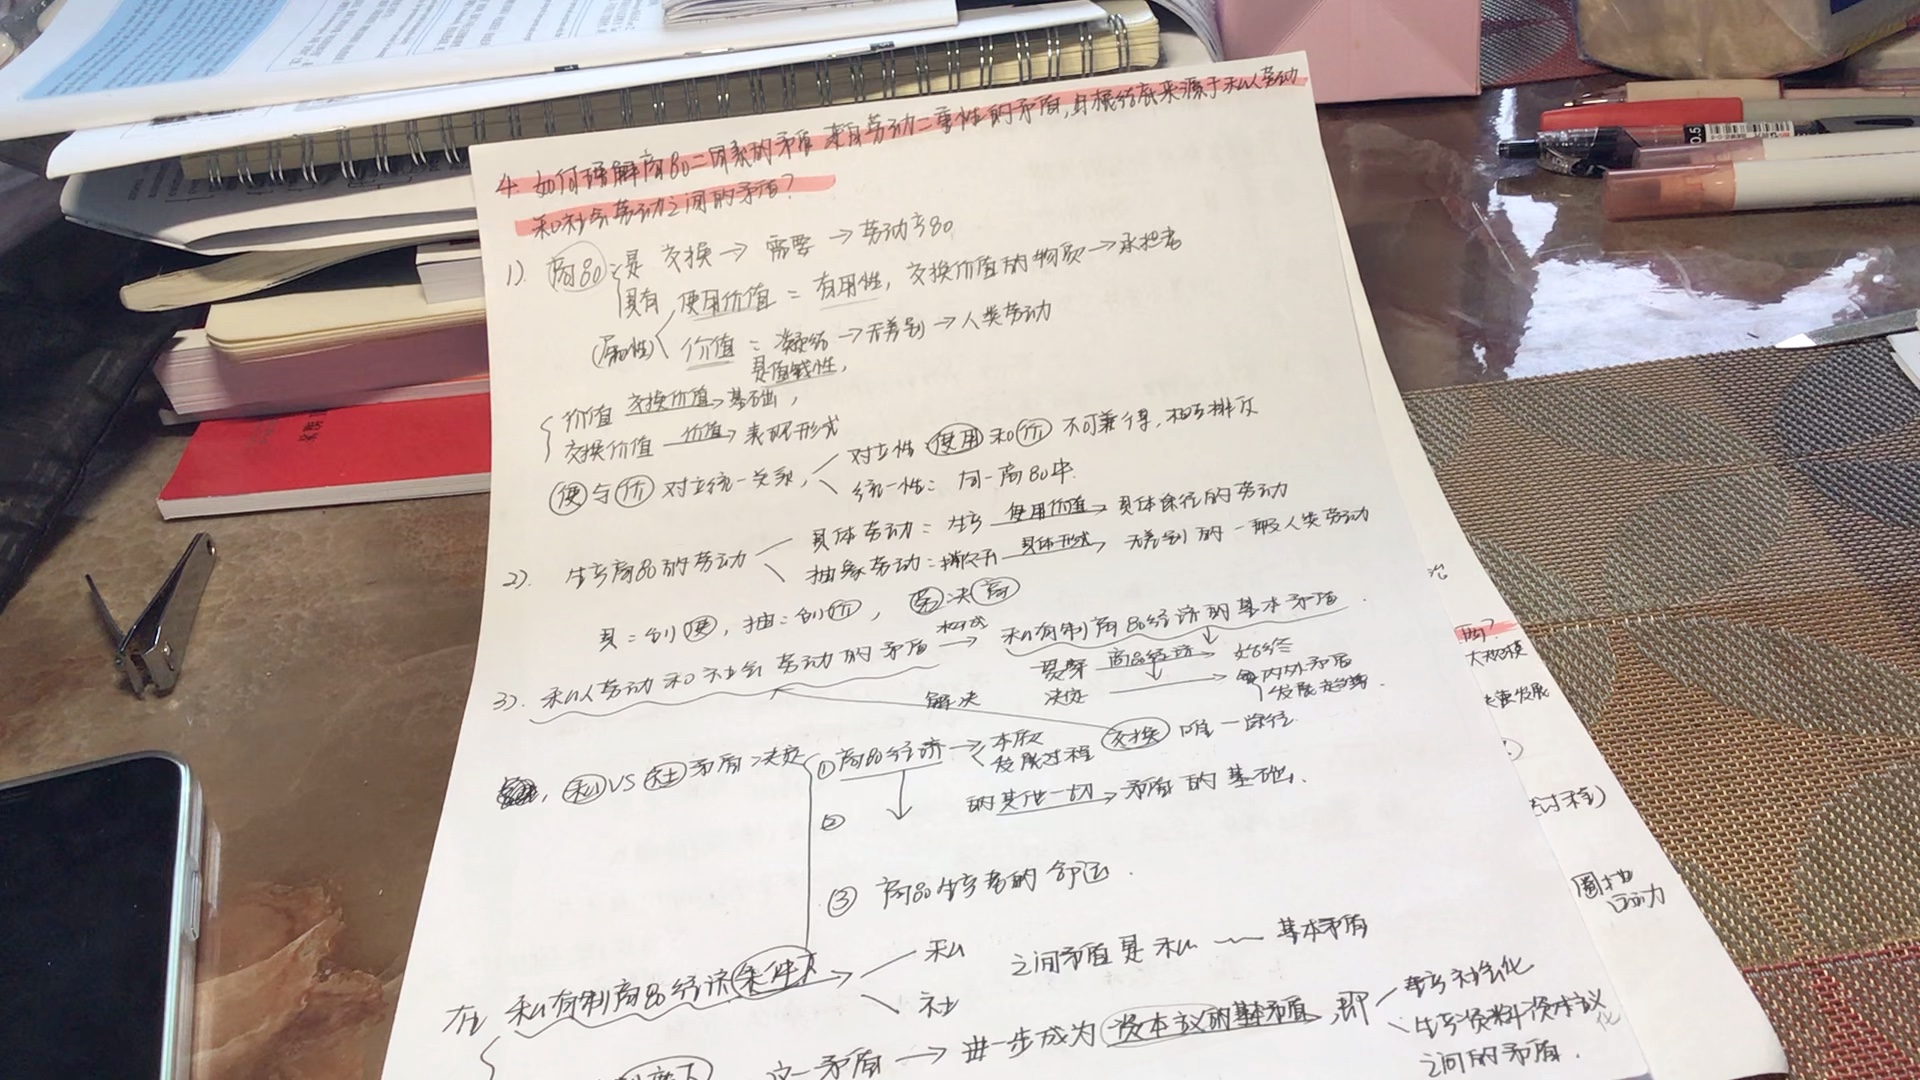 4. 如何理解商品二因素的矛盾来自劳动二重性的矛盾,归根结底来源于私人劳动
和社会劳动之间的矛盾?
1). 商品 是 交换→需要→劳动产品
具有 使用价值 = 有用性, 交换价值的物质→承担者
(属性) 价值 = 凝结→无差别→人类劳动
价值 交换价值→基础,
交换价值 价值→表现形式
使与价 对立统一关系, 对立性 使用和价 不可兼得, 相互排斥
统一性: 同一商品中.
2). 生产商品的劳动 具体劳动 = 生产 使用价值→具体途径的劳动
抽象劳动 = 撇开 具体形式→无差别的一般人类劳动
具=创使, 抽=创价, 劳决商
3). 私人劳动和社会劳动的矛盾 构成→私有制商品经济的基本矛盾.
贯穿 商品经济→始终
决定→内外矛盾
发展趋势.
解决 交换 唯一途径.
私VS社 矛盾 决定 ①商品经济→本质
发展过程
② 的其他一切→矛盾的基础.
③ 商品生产者的命运.
在 私有制商品经济条件下→私 社 之间矛盾是私 基本矛盾
这一矛盾→进一步成为资本主义的基本矛盾, 即 生产社会化
生产资料资本主义
化
之间的矛盾.
治
大规模
0.5